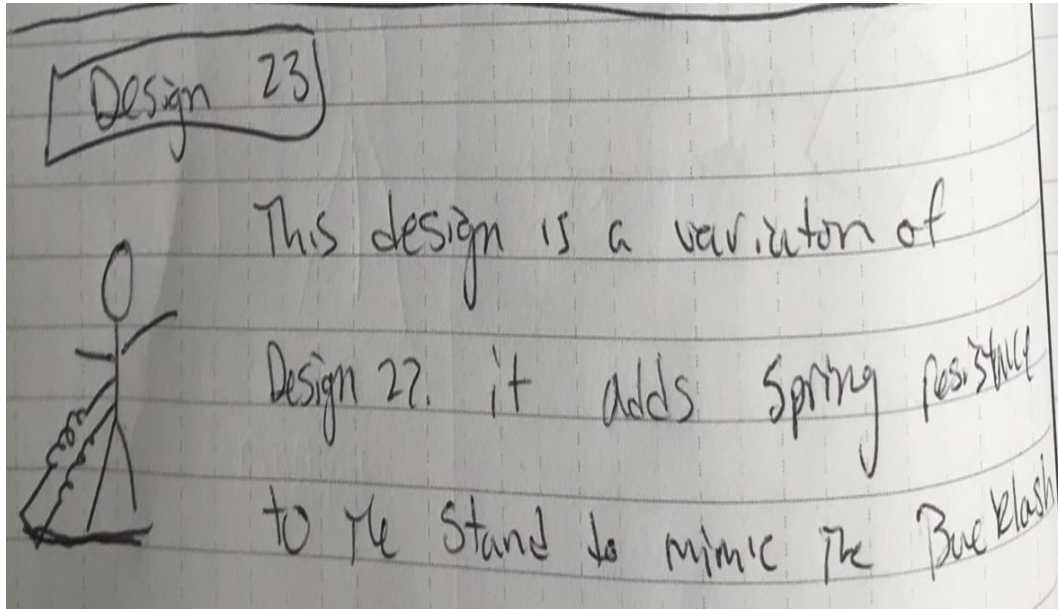 Design 23
This design is a variaton of
Design 22. it adds spring resistance
to the stand to mimic the Backlash